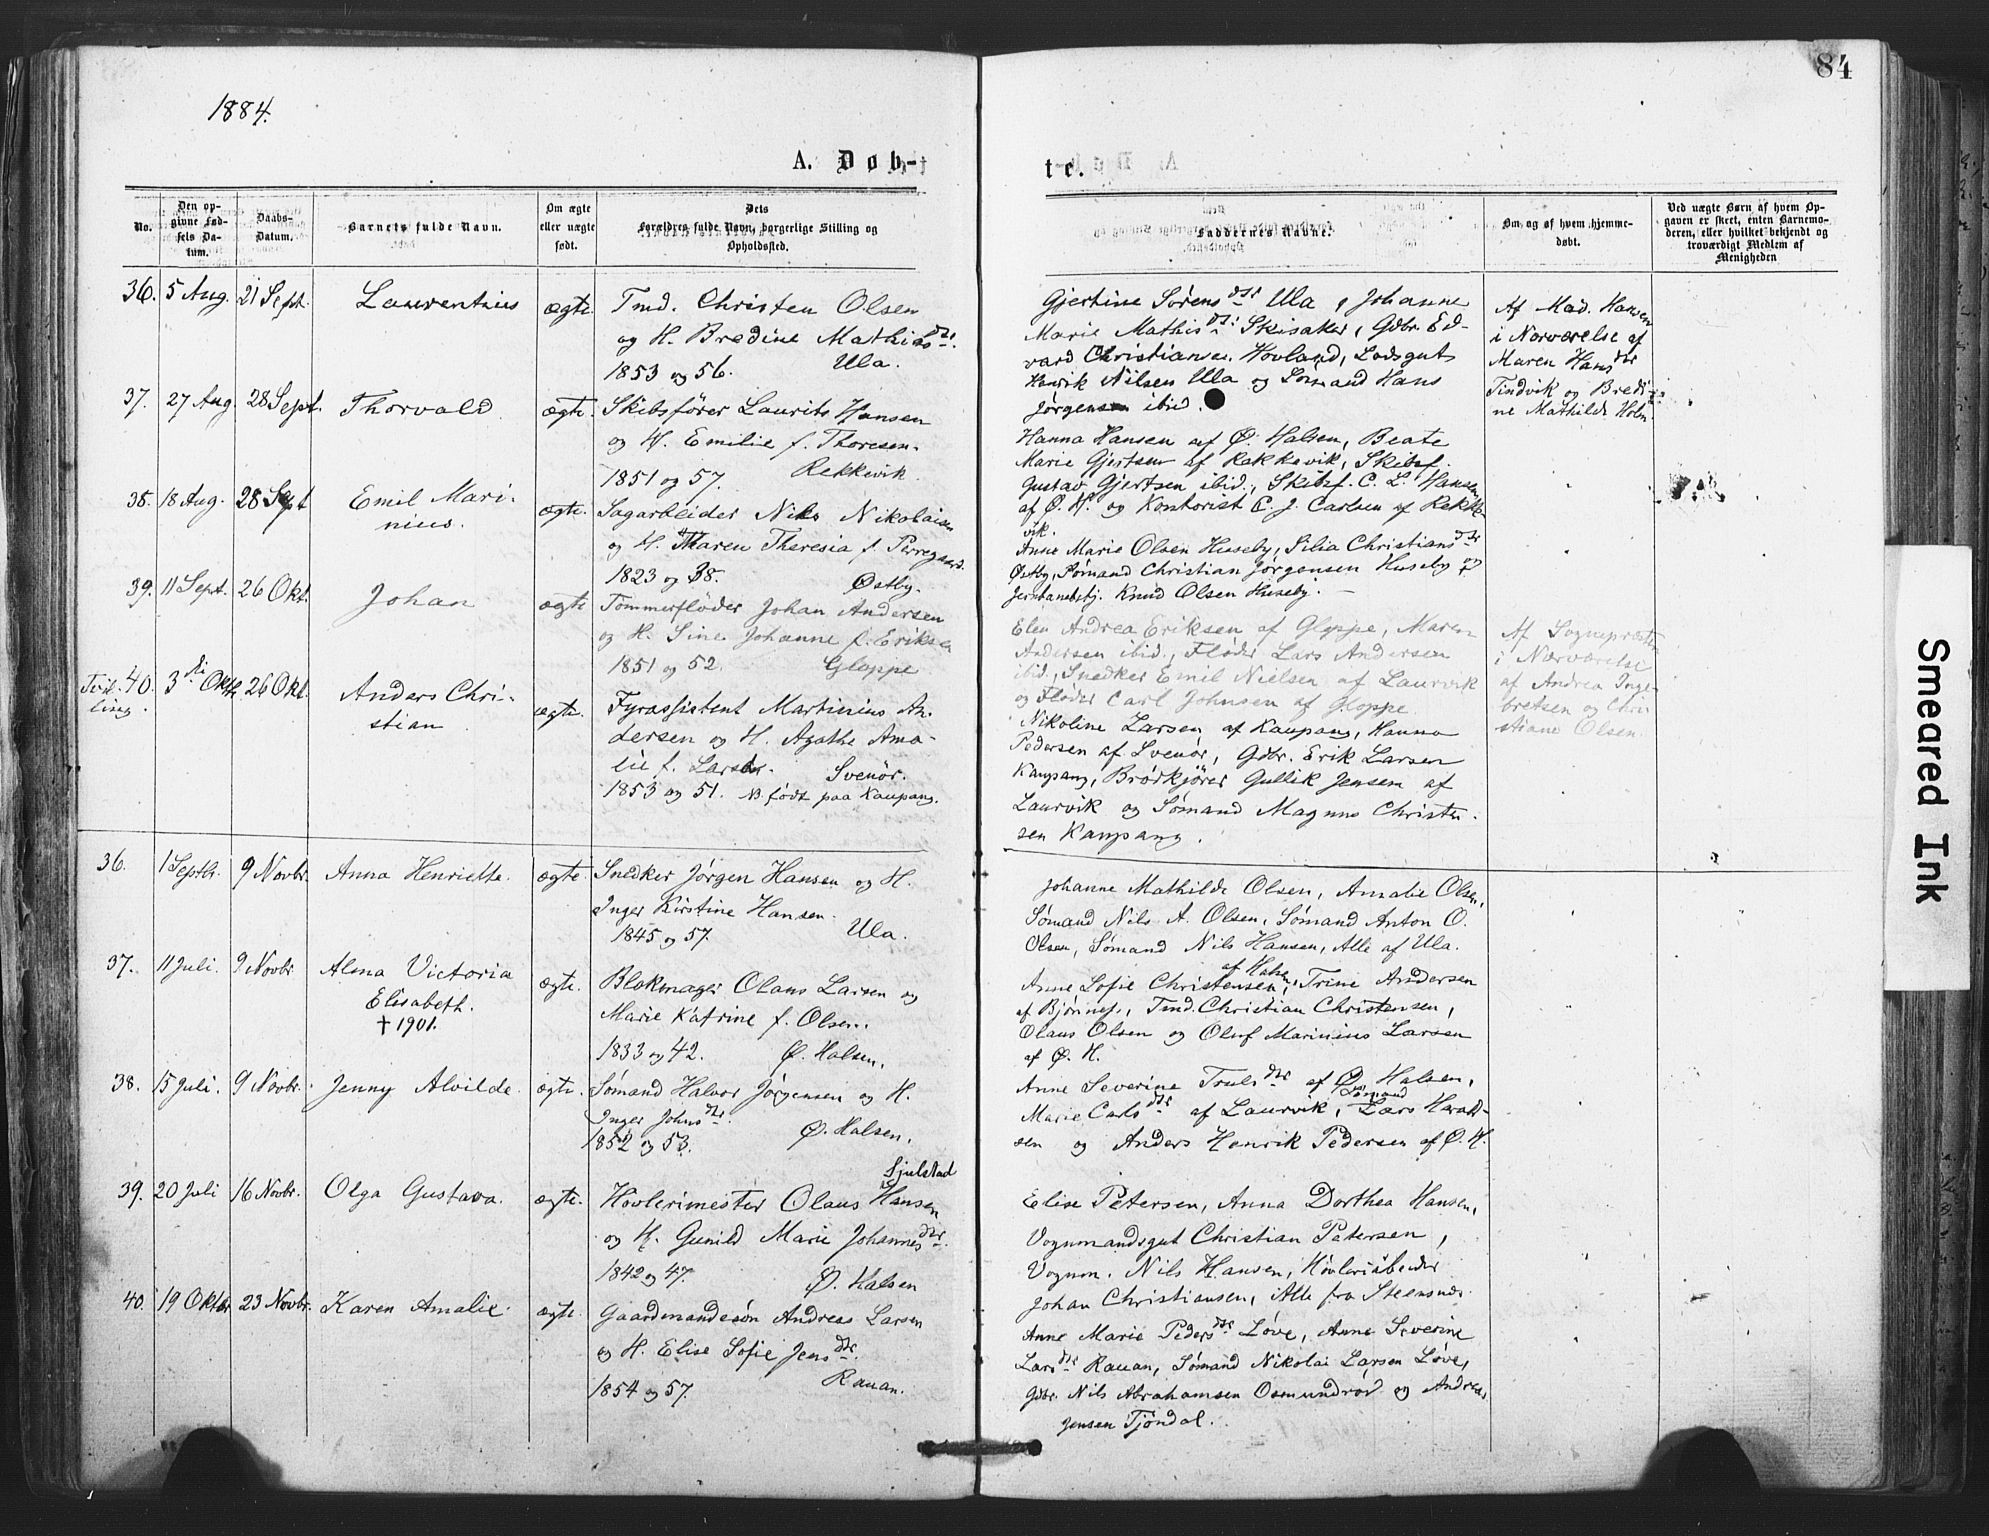 1884.
84
A. Døb-
te.
No.
Den op-
givne Fød-
sels Da-
tum.
Daabs-
Datum.
Barnets fulde Navn.
Om ægte
eller uægte
født.
Dets
Forældres fulde Navn, borgerlige Stilling og
Opholdssted.
Faddernes Navne.
Om og af hvem hjemme-
døbt.
Ved uægte Børn af hvem Op-
gaven er skeet, enten Barnemo-
deren, eller hvilket bekjendt og
troværdigt Medlem af
Menigheden
36. 5 Aug. 21 Sept. Laurentius ægte. Tmd. Christen Olsen
og H. Bredine Mathiasdtr.
1853 og 56. Ula.
Gjertine Sørensdtr Ula, Johanne
Marie Mathisdtr: Skisaker, Gdbr. Ed-
vard Christiansen Hovland, Lodsgut
Henrik Nilsen Ula og Sømand Hans
Jørgensen ibid.
Af Mad. Hansen
i Nærværelse af
Maren Hansdtr
Tindvik og Bredi-
ne Mathilde Holm
37. 27 Aug. 28 Sept. Thorvald ægte. Skibsfører Laurits Hansen
og H. Emilie f. Thoresen.
1851 og 57. Rekkevik.
Hanna Hansen af Ø. Halsen, Beate
Marie Gjertsen af Rekkevik, Skibsf.
Gustav Gjertsen ibid., Skibsf. C. L. Hansen
af Ø. H. og Kontorist C. J. Carlsen af Rekke-
vik.
38. 18 Aug. 28 Sept Emil Mari-
nius. ægte. Sagarbeider Nils Nikolaisen
og H. Maren Theresia f. Perregaard.
1823 og 38. Østby.
Anne Marie Olsen Huseby, Silia Christiansdtr
Østby, Sømand Christian Jørgensen Huseby og
Jernbanebtj. Knud Olsen Huseby.
39. 11 Sept. 26 Okt. Johan ægte Tømmerfløder Johan Andersen
og H. Sine Johanne f. Eriksen
1851 og 52. Gloppe
Elen Andrea Eriksen af Gloppe, Maren
Andersen ibid., Fløder Lars Andersen
ibid., Snedker Emil Nielsen af Laurvik
og Fløder Carl Johnsen af Gloppe.
Af Sognepræsten
i Nærværelse
af Andrea Inge-
bretsen og Chri
stiane Olsen.
Tvil-
ling.
40. 3die Okt. 26 Okt. Anders Chri-
stian ægte. Fyrassistent Martinius An-
dersen og H. Agathe Ama-
lie f. Larsen. Svenør.
1853 og 51. NB. født paa Kaupang.
Nikoline Larsen af Kaupang, Hanna
Pedersen af Svenør, Gdbr. Erik Larsen
Kaupang, Brødkjører Gullik Jensen af
Laurvik og Sømand Magnus Christen-
sen Kaupang.
36. 1 Septbr. 9 Novbr. Anna Henriette. ægte. Snedker Jørgen Hansen og H.
Inger Kirstine Hansen.
1845 og 57. Ula.
Johanne Mathilde Olsen, Amalie Olsen,
Sømand Nils A. Olsen, Sømand Anton O.
Olsen, Sømand Nils Hansen, Alle af Ula.
37. 11 Juli. 9 Novbr Alma Victoria
Elisabeth.
† 1901. ægte. Blokmager Olaus Larsen og
Marie Katrine f. Olsen.
1833 og 42. Ø. Halsen.
af Halsen
Anne Sofie Christensen, Trine Andersen
af Bjønnes, Tmd. Christian Christensen,
Olaus Olsen og Oluf Marinius Larsen
af Ø. H.
38. 15 Juli. 9 Novbr. Jenny Alvilde. ægte. Sømand Halvor Jørgensen og H.
Inger Johnsdtr.
1852 og 53. Ø. Halsen.
Anne Severine Trulsdtr af Ø. Halsen,
Sømand
Marie Carlsdtr af Laurvik, Lars Harald-
sen og Anders Henrik Pedersen af Ø. H.
Sjulstad
39. 20 Juli 16 Novbr. Olga Gustava. ægte. Høvlerimester Olaus Hansen
og H. Gunild Marie Johannesdtr.
1842 og 47. Ø. Halsen
Elise Petersen, Anna Dorthea Hansen,
Vognmandsgut Christian Petersen,
Vognm. Nils Hansen, Høvleriarbeider
Johan Christiansen, Alle fra Steensnes.
40. 19 Oktbr 23 Novbr. Karen Amalie. ægte. Gaardmandssøn Andreas Larsen
og H. Elise Sofie Jensdtr.
1854 og 57. Rauan.
Anne Marie Pedersdtr Løve, Anne Severine
Larsdtr Rauan, Sømand Nikolai Larsen Løve,
Gdbr. Nils Abrahamsen Osmundrød og Andreas
Jensen Tjøndal.
Smeared Ink